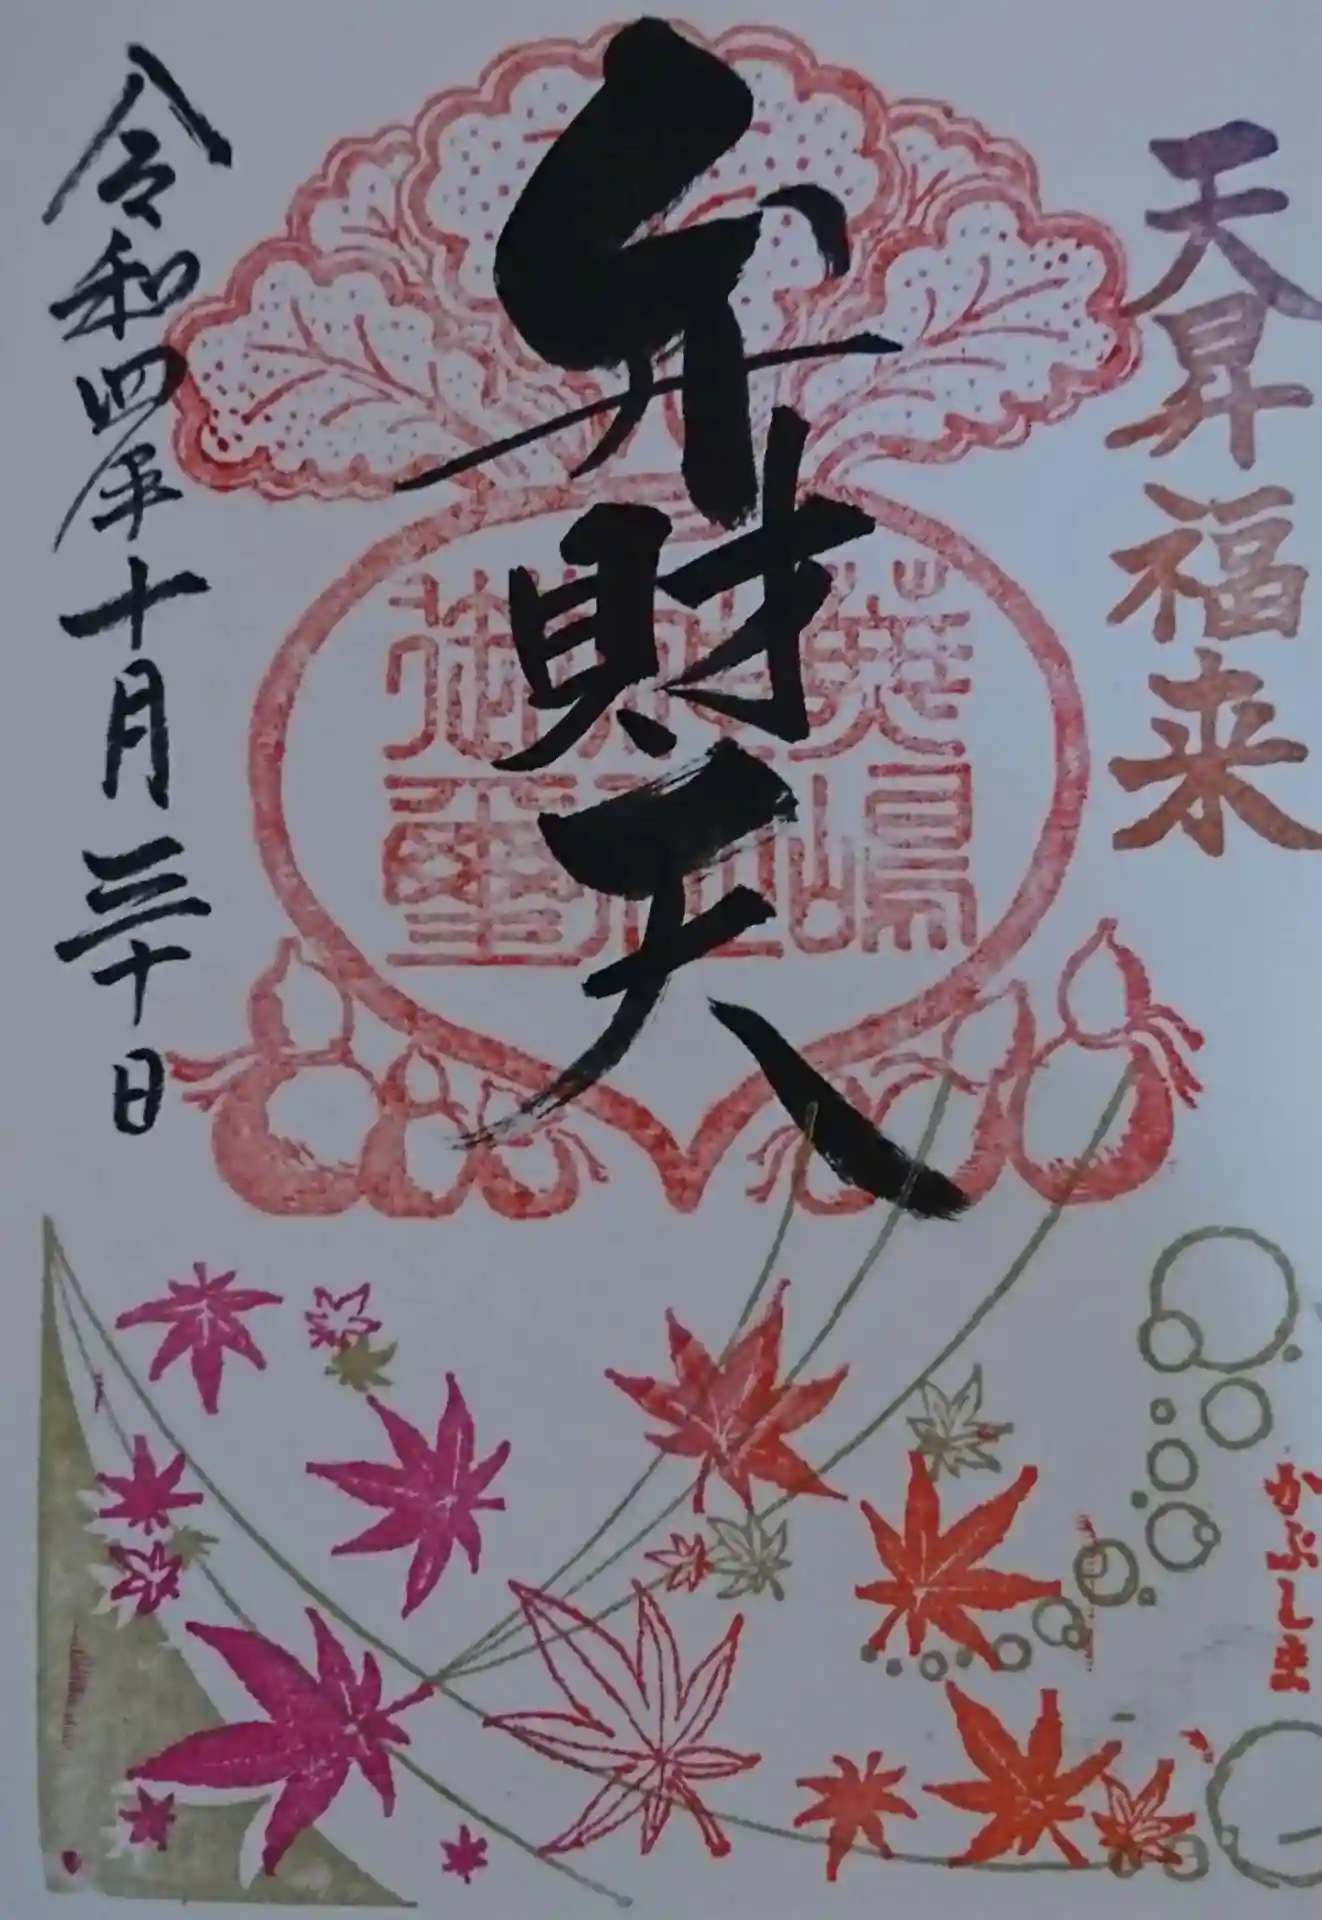 天昇福来
弁財天
令和四年十月三十日
かぶしま